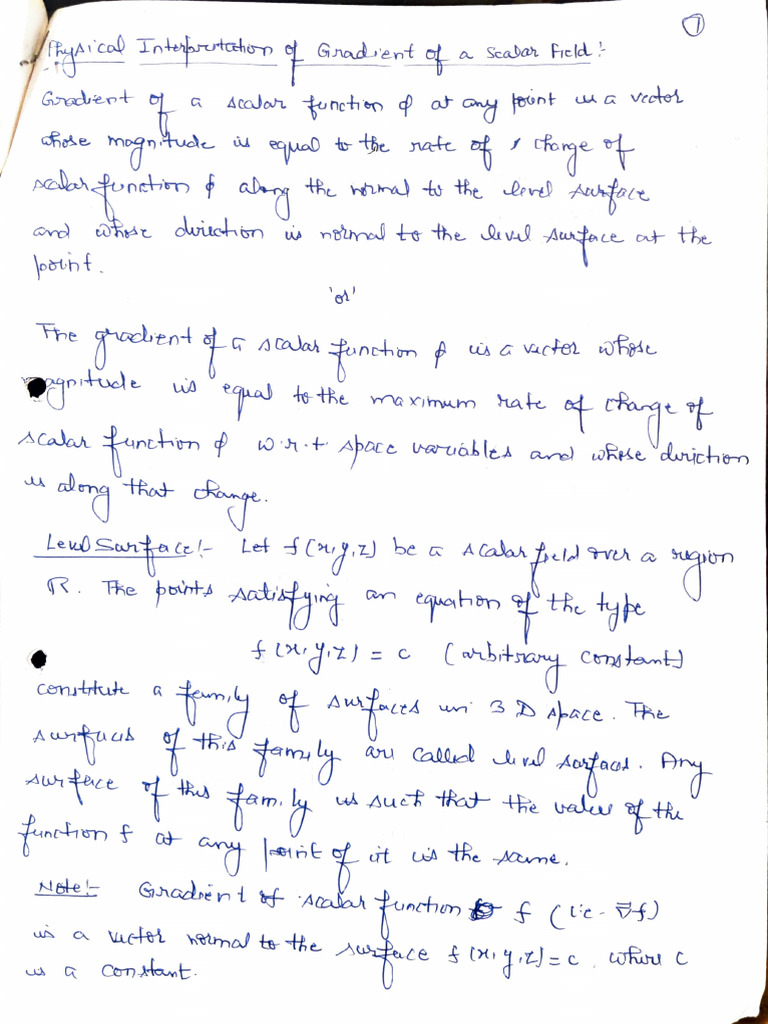 7
Physical Interpretation of Gradient of a Scalar Field:-
Gradient of a scalar function φ at any point is a vector
whose magnitude is equal to the rate of change of
scalar function φ along the normal to the level surface
and whose direction is normal to the level surface at the
point.
'or'
The gradient of a scalar function φ is a vector whose
magnitude is equal to the maximum rate of change of
scalar function φ w.r.t space variables and whose direction
is along that change.
Level Surface:- Let f(x,y,z) be a scalar field over a region
R. The points satisfying an equation of the type
f(x,y,z) = c (arbitrary constant)
constitute a family of surfaces in 3D space. The
surfaces of this family are called level surfaces. Any
surface of this family is such that the value of the
function f at any point of it is the same.
Note:- Gradient of scalar function f (i.e. ∇̄f)
is a vector normal to the surface f(x,y,z)=c, where c
is a constant.